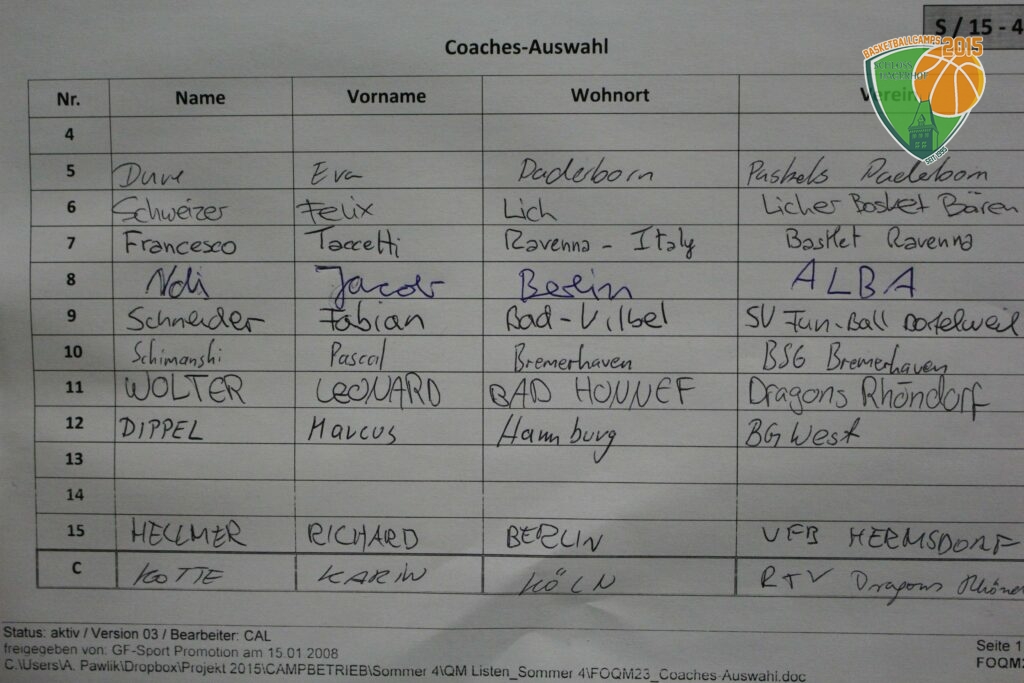 S / 15 - 4
BASKETBALLCAMPS 2015
SCHLOSS
HAGERHOF
SEIT 1995
Coaches-Auswahl
Nr. Name Vorname Wohnort Verein
4
5 Duve Eva Paderborn Baskets Paderborn
6 Schweizer Felix Lich Licher Basket Bären
7 Francesco Taccetti Ravenna - Italy Basket Ravenna
8 Jacob Berlin ALBA
9 Schneider Fabian Bad-Vilbel SV Fun-Ball Dortelweil
10 Schimanski Pascal Bremerhaven BSG Bremerhaven
11 WOLTER LEONARD BAD HONNEF Dragons Rhöndorf
12 DIPPEL Marcus Hamburg BG West
13
14
15 HELLMER RICHARD BERLIN VFB HERMSDORF
C KOTTE KARIN KÖLN RTV Dragons Rhönd
Status: aktiv / Version 03 / Bearbeiter: CAL
freigegeben von: GF-Sport Promotion am 15.01.2008
Seite 1
C:\Users\A. Pawlik\Dropbox\Projekt 2015\CAMPBETRIEB\Sommer 4\QM Listen_Sommer 4\FOQM23_Coaches-Auswahl.doc
FOQM2